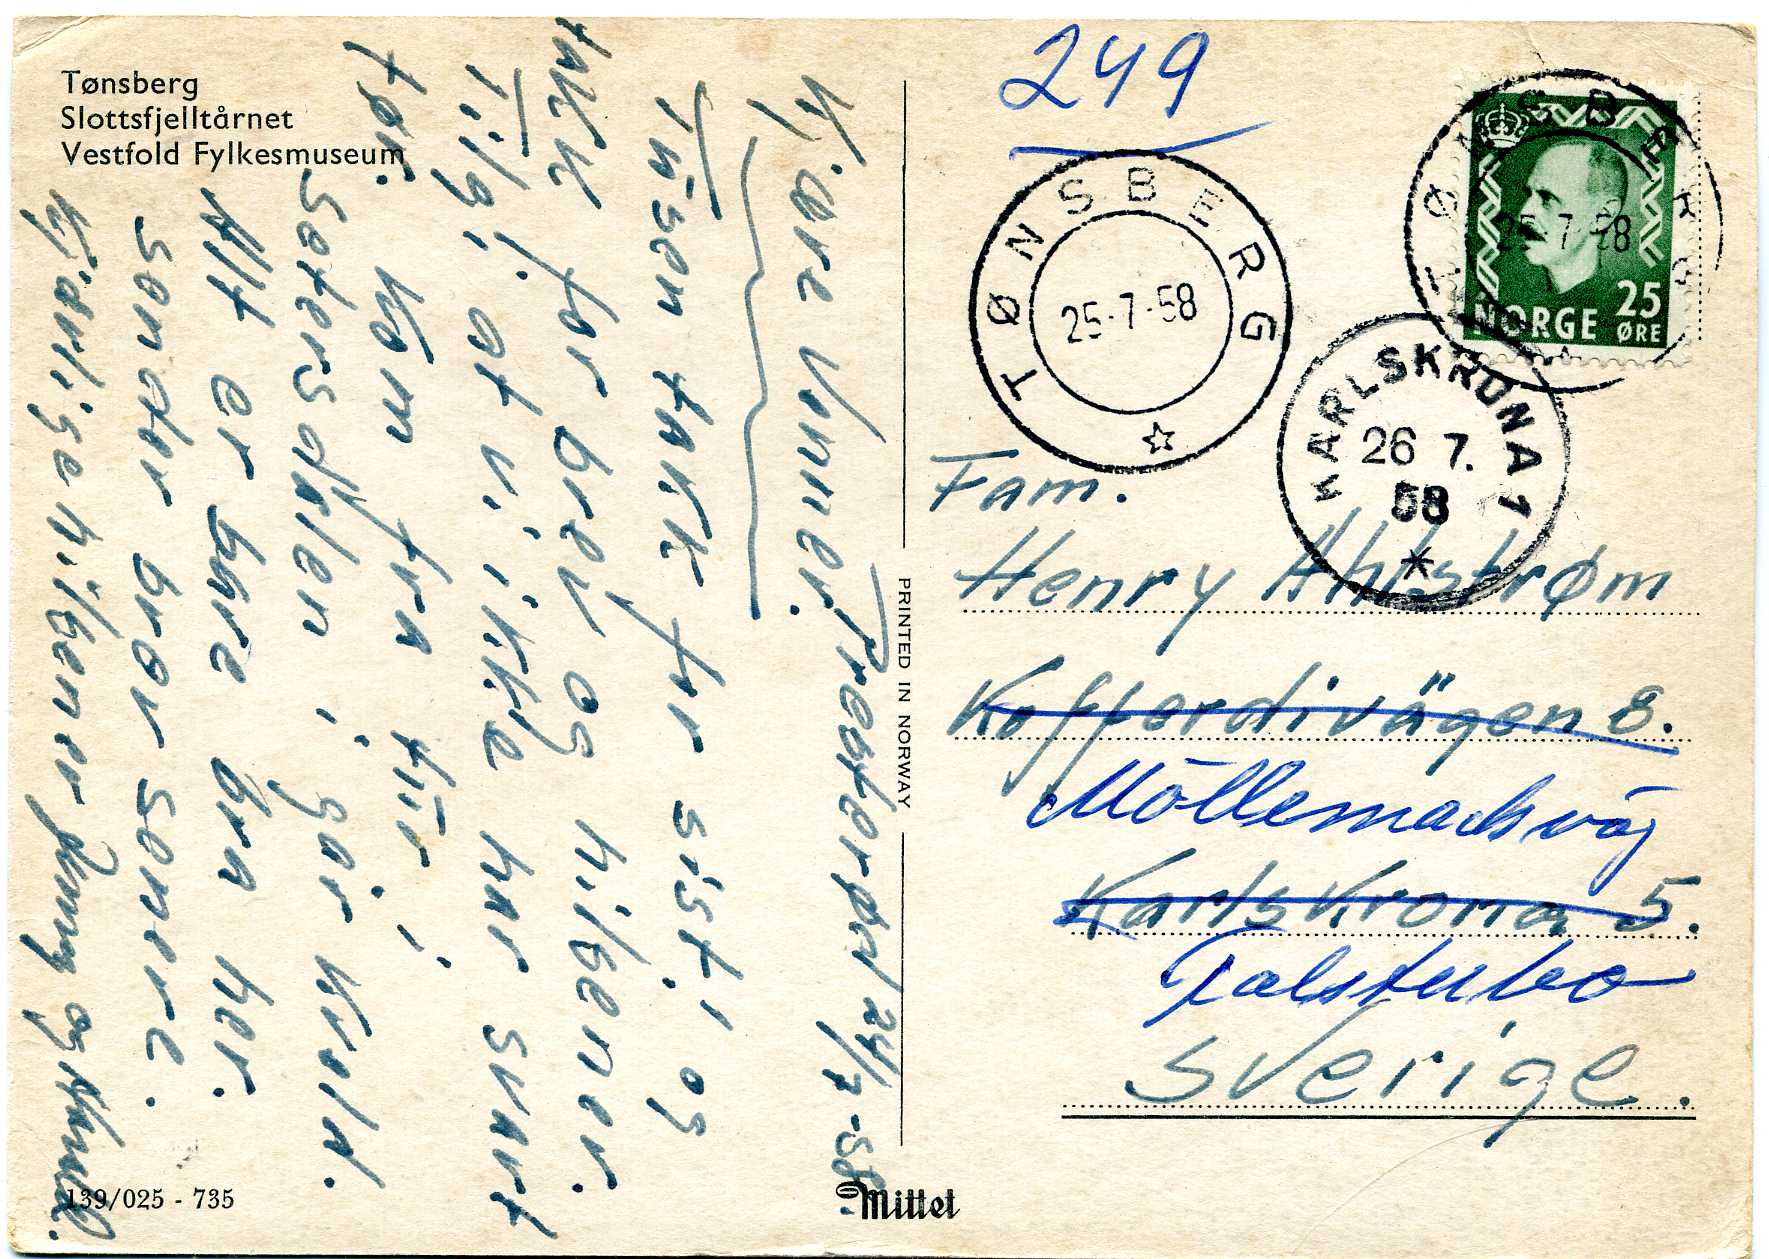 Tønsberg
Slottsfjelltårnet
Vestfold Fylkesmuseum
Presterød 24/7-58.
Kjære Venner.
Tusen takk for sist! og
takk for brev og hilsener.
Tilgi at vi ikke har svart
før. Kom fra tur i
Setersdalen i går kveld.
Alt er bare bra her.
Sender brev senere.
Kjærlige hilsener Jenny og
139/025 - 735
PRINTED IN NORWAY
Mittet
249
TØNSBERG
25-7-58
TØNSBERG
25-7-58
NORGE 25 ØRE
KARLSKRONA 1
26 7. 58
Fam.
Henry Ahlstrøm
Kofferdivägen 8.
Möllemadsväg
Karlskrona 5.
Falsterbo
Sverige.